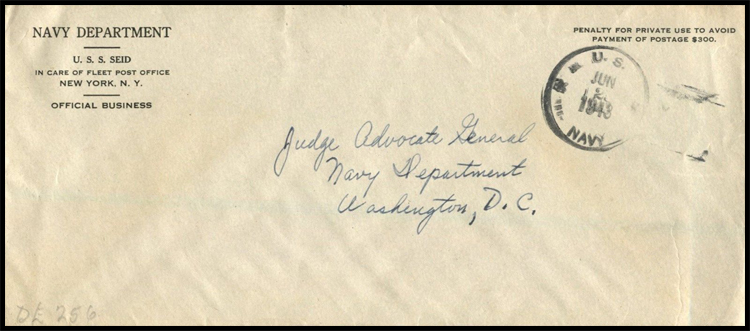 NAVY DEPARTMENT
U. S. S. SEID
IN CARE OF FLEET POST OFFICE
NEW YORK, N. Y.
OFFICIAL BUSINESS
PENALTY FOR PRIVATE USE TO AVOID
PAYMENT OF POSTAGE $300.
U. S.
JUN
1943
NAVY
Judge Advocate General
Navy Department
Washington, D. C.
DE 256